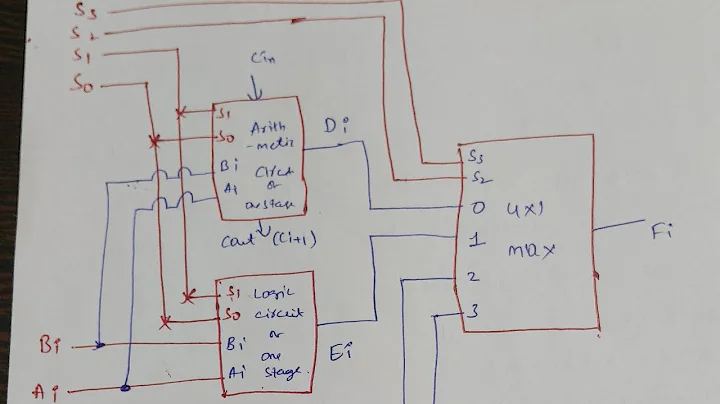 S3
S2
S1
S0
Cin
S1
S0
Arith
-metic
Bi
Circt
Ai
or
onestage
Di
Cout (Ci+1)
S3
S2
0
4x1
1
mux
2
3
Fi
S1 Logic
S0 circuit
or
Bi one
Ai stage.
Ei
Bi
Ai